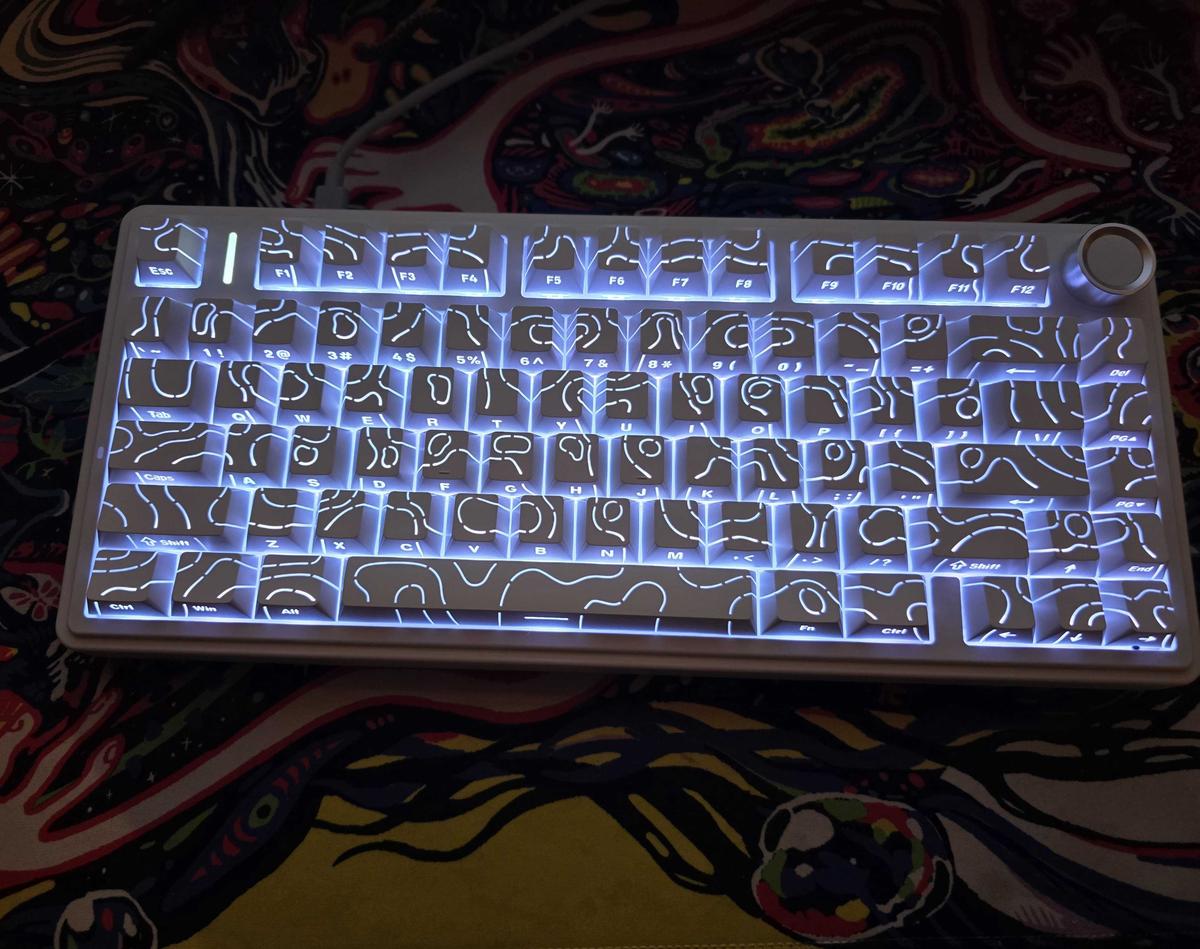 Esc F1 F2 F3 F4 F5 F6 F7 F8 F9 F10 F11 F12
\ ~ 1 ! 2 @ 3 # 4 $ 5 % 6 ^ 7 & 8 * 9 ( 0 ) - _ = + ← Del
Tab Q W E R T Y U I O P [ { ] } \ | PG▲
Caps A S D F G H J K L ; : ' " ↵ PG▼
⇧ Shift Z X C V B N M , < . > / ? ⇧ Shift ↑ End
Ctrl Win Alt Fn Ctrl ← ↓ →